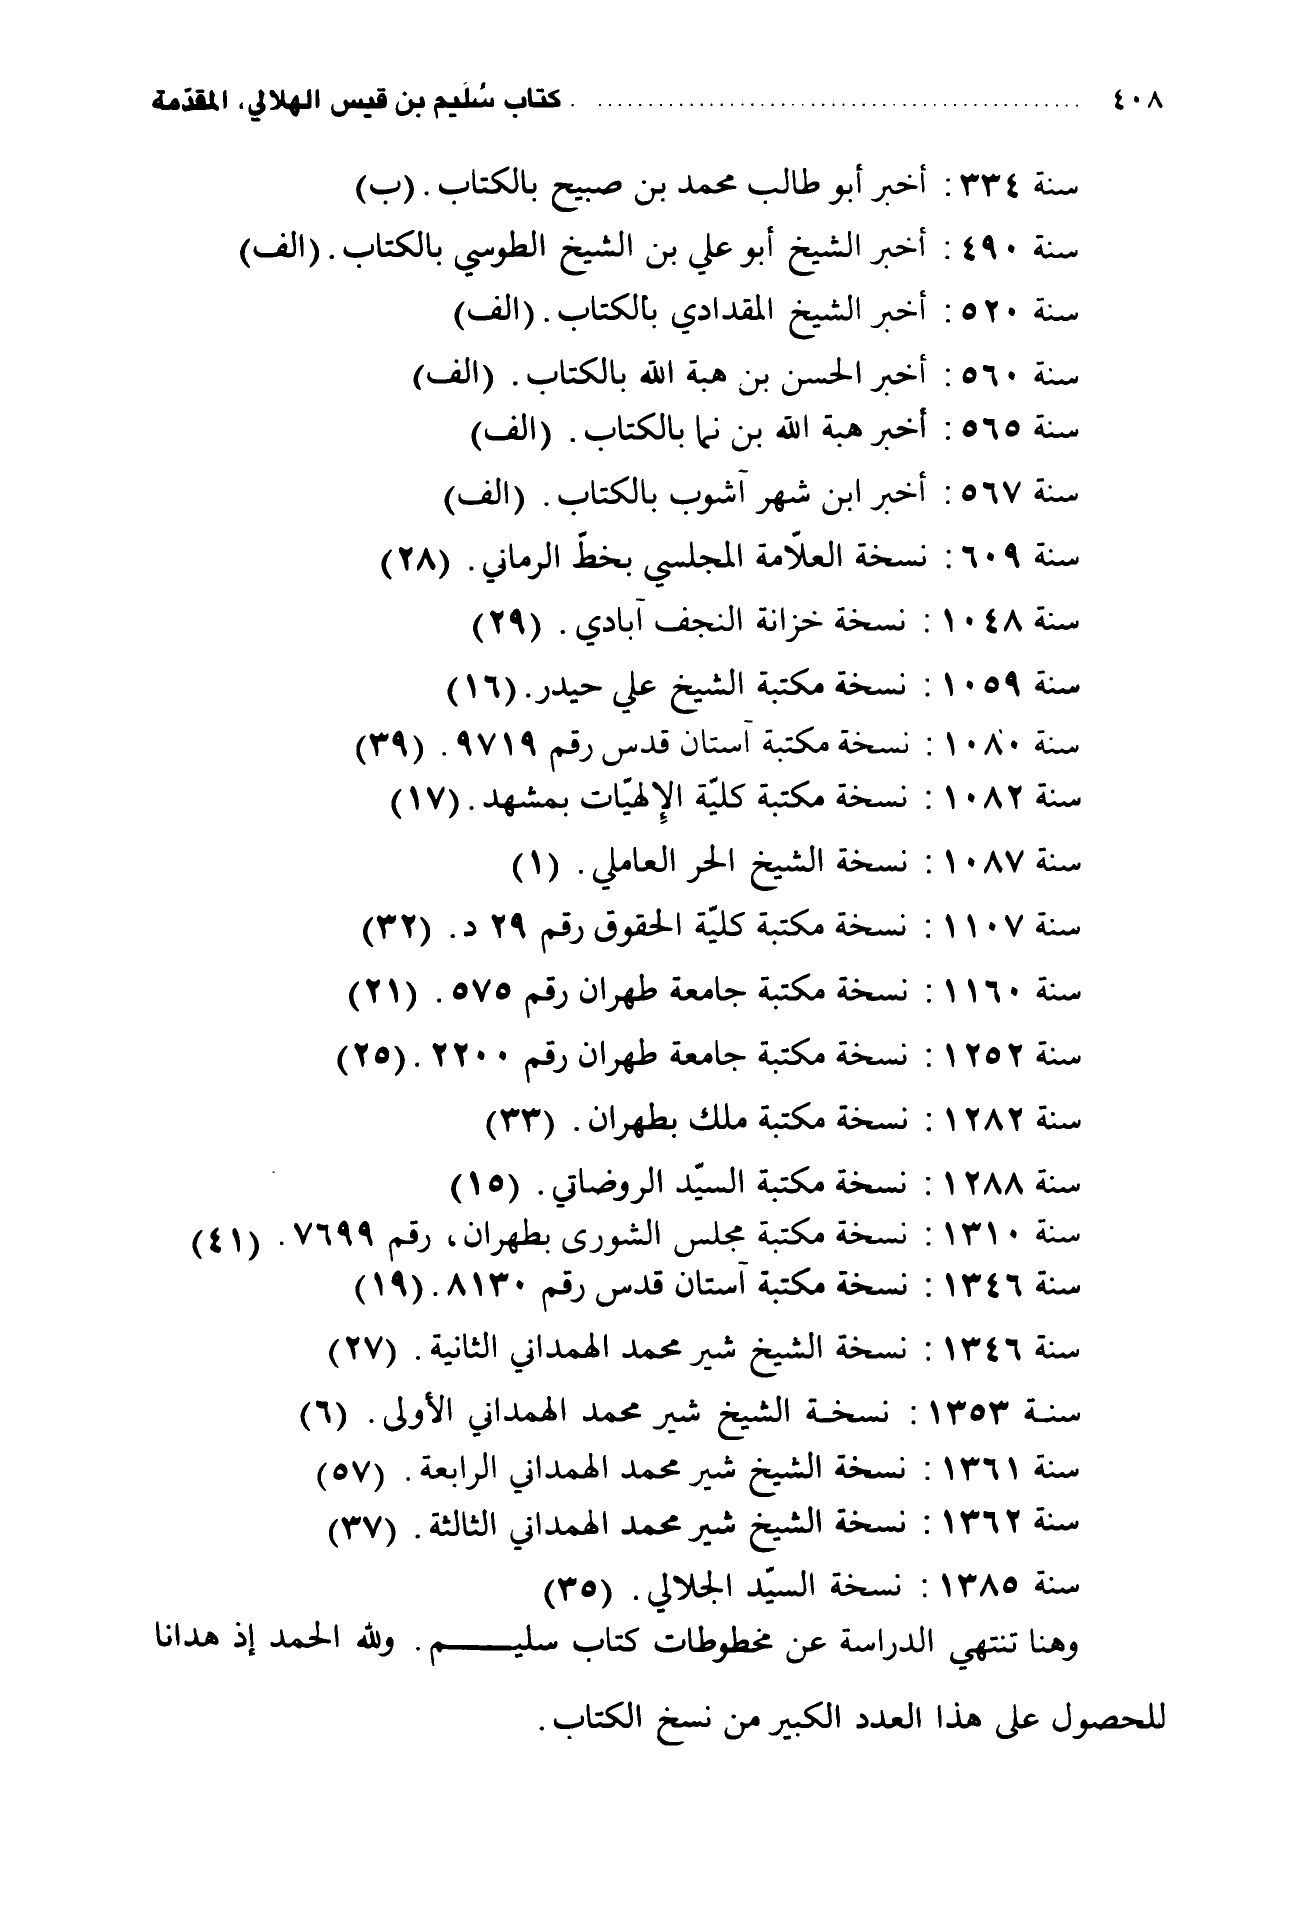 ٤٠٨ ........................................ كتاب سُلَيم بن قيس الهلالي، المقدّمة
سنة ٣٣٤ : أخبر أبو طالب محمد بن صبيح بالكتاب. (ب)
سنة ٤٩٠ : أخبر الشيخ أبو علي بن الشيخ الطوسي بالكتاب. (الف)
سنة ٥٢٠ : أخبر الشيخ المقدادي بالكتاب. (الف)
سنة ٥٦٠ : أخبر الحسن بن هبة الله بالكتاب. (الف)
سنة ٥٦٥ : أخبر هبة الله بن نما بالكتاب. (الف)
سنة ٥٦٧ : أخبر ابن شهر آشوب بالكتاب. (الف)
سنة ٦٠٩ : نسخة العلّامة المجلسي بخطّ الرماني. (٢٨)
سنة ١٠٤٨ : نسخة خزانة النجف آبادي. (٢٩)
سنة ١٠٥٩ : نسخة مكتبة الشيخ علي حيدر. (١٦)
سنة ١٠٨٠ : نسخة مكتبة آستان قدس رقم ٩٧١٩. (٣٩)
سنة ١٠٨٢ : نسخة مكتبة كليّة الإلهيّات بمشهد. (١٧)
سنة ١٠٨٧ : نسخة الشيخ الحر العاملي. (١)
سنة ١١٠٧ : نسخة مكتبة كليّة الحقوق رقم ٢٩ د. (٣٢)
سنة ١١٦٠ : نسخة مكتبة جامعة طهران رقم ٥٧٥. (٢١)
سنة ١٢٥٢ : نسخة مكتبة جامعة طهران رقم ٢٢٠٠. (٢٥)
سنة ١٢٨٢ : نسخة مكتبة ملك بطهران. (٣٣)
سنة ١٢٨٨ : نسخة مكتبة السيّد الروضاتي. (١٥)
سنة ١٣١٠ : نسخة مكتبة مجلس الشورى بطهران، رقم ٧٦٩٩. (٤١)
سنة ١٣٤٦ : نسخة مكتبة آستان قدس رقم ٨١٣٠. (١٩)
سنة ١٣٤٦ : نسخة الشيخ شير محمد الهمداني الثانية. (٢٧)
سنة ١٣٥٣ : نسخة الشيخ شير محمد الهمداني الأولى. (٦)
سنة ١٣٦١ : نسخة الشيخ شير محمد الهمداني الرابعة. (٥٧)
سنة ١٣٦٢ : نسخة الشيخ شير محمد الهمداني الثالثة. (٣٧)
سنة ١٣٨٥ : نسخة السيّد الجلالي. (٣٥)
وهنا تنتهي الدراسة عن مخطوطات كتاب سليـــــم. ولله الحمد إذ هدانا
للحصول على هذا العدد الكبير من نسخ الكتاب.